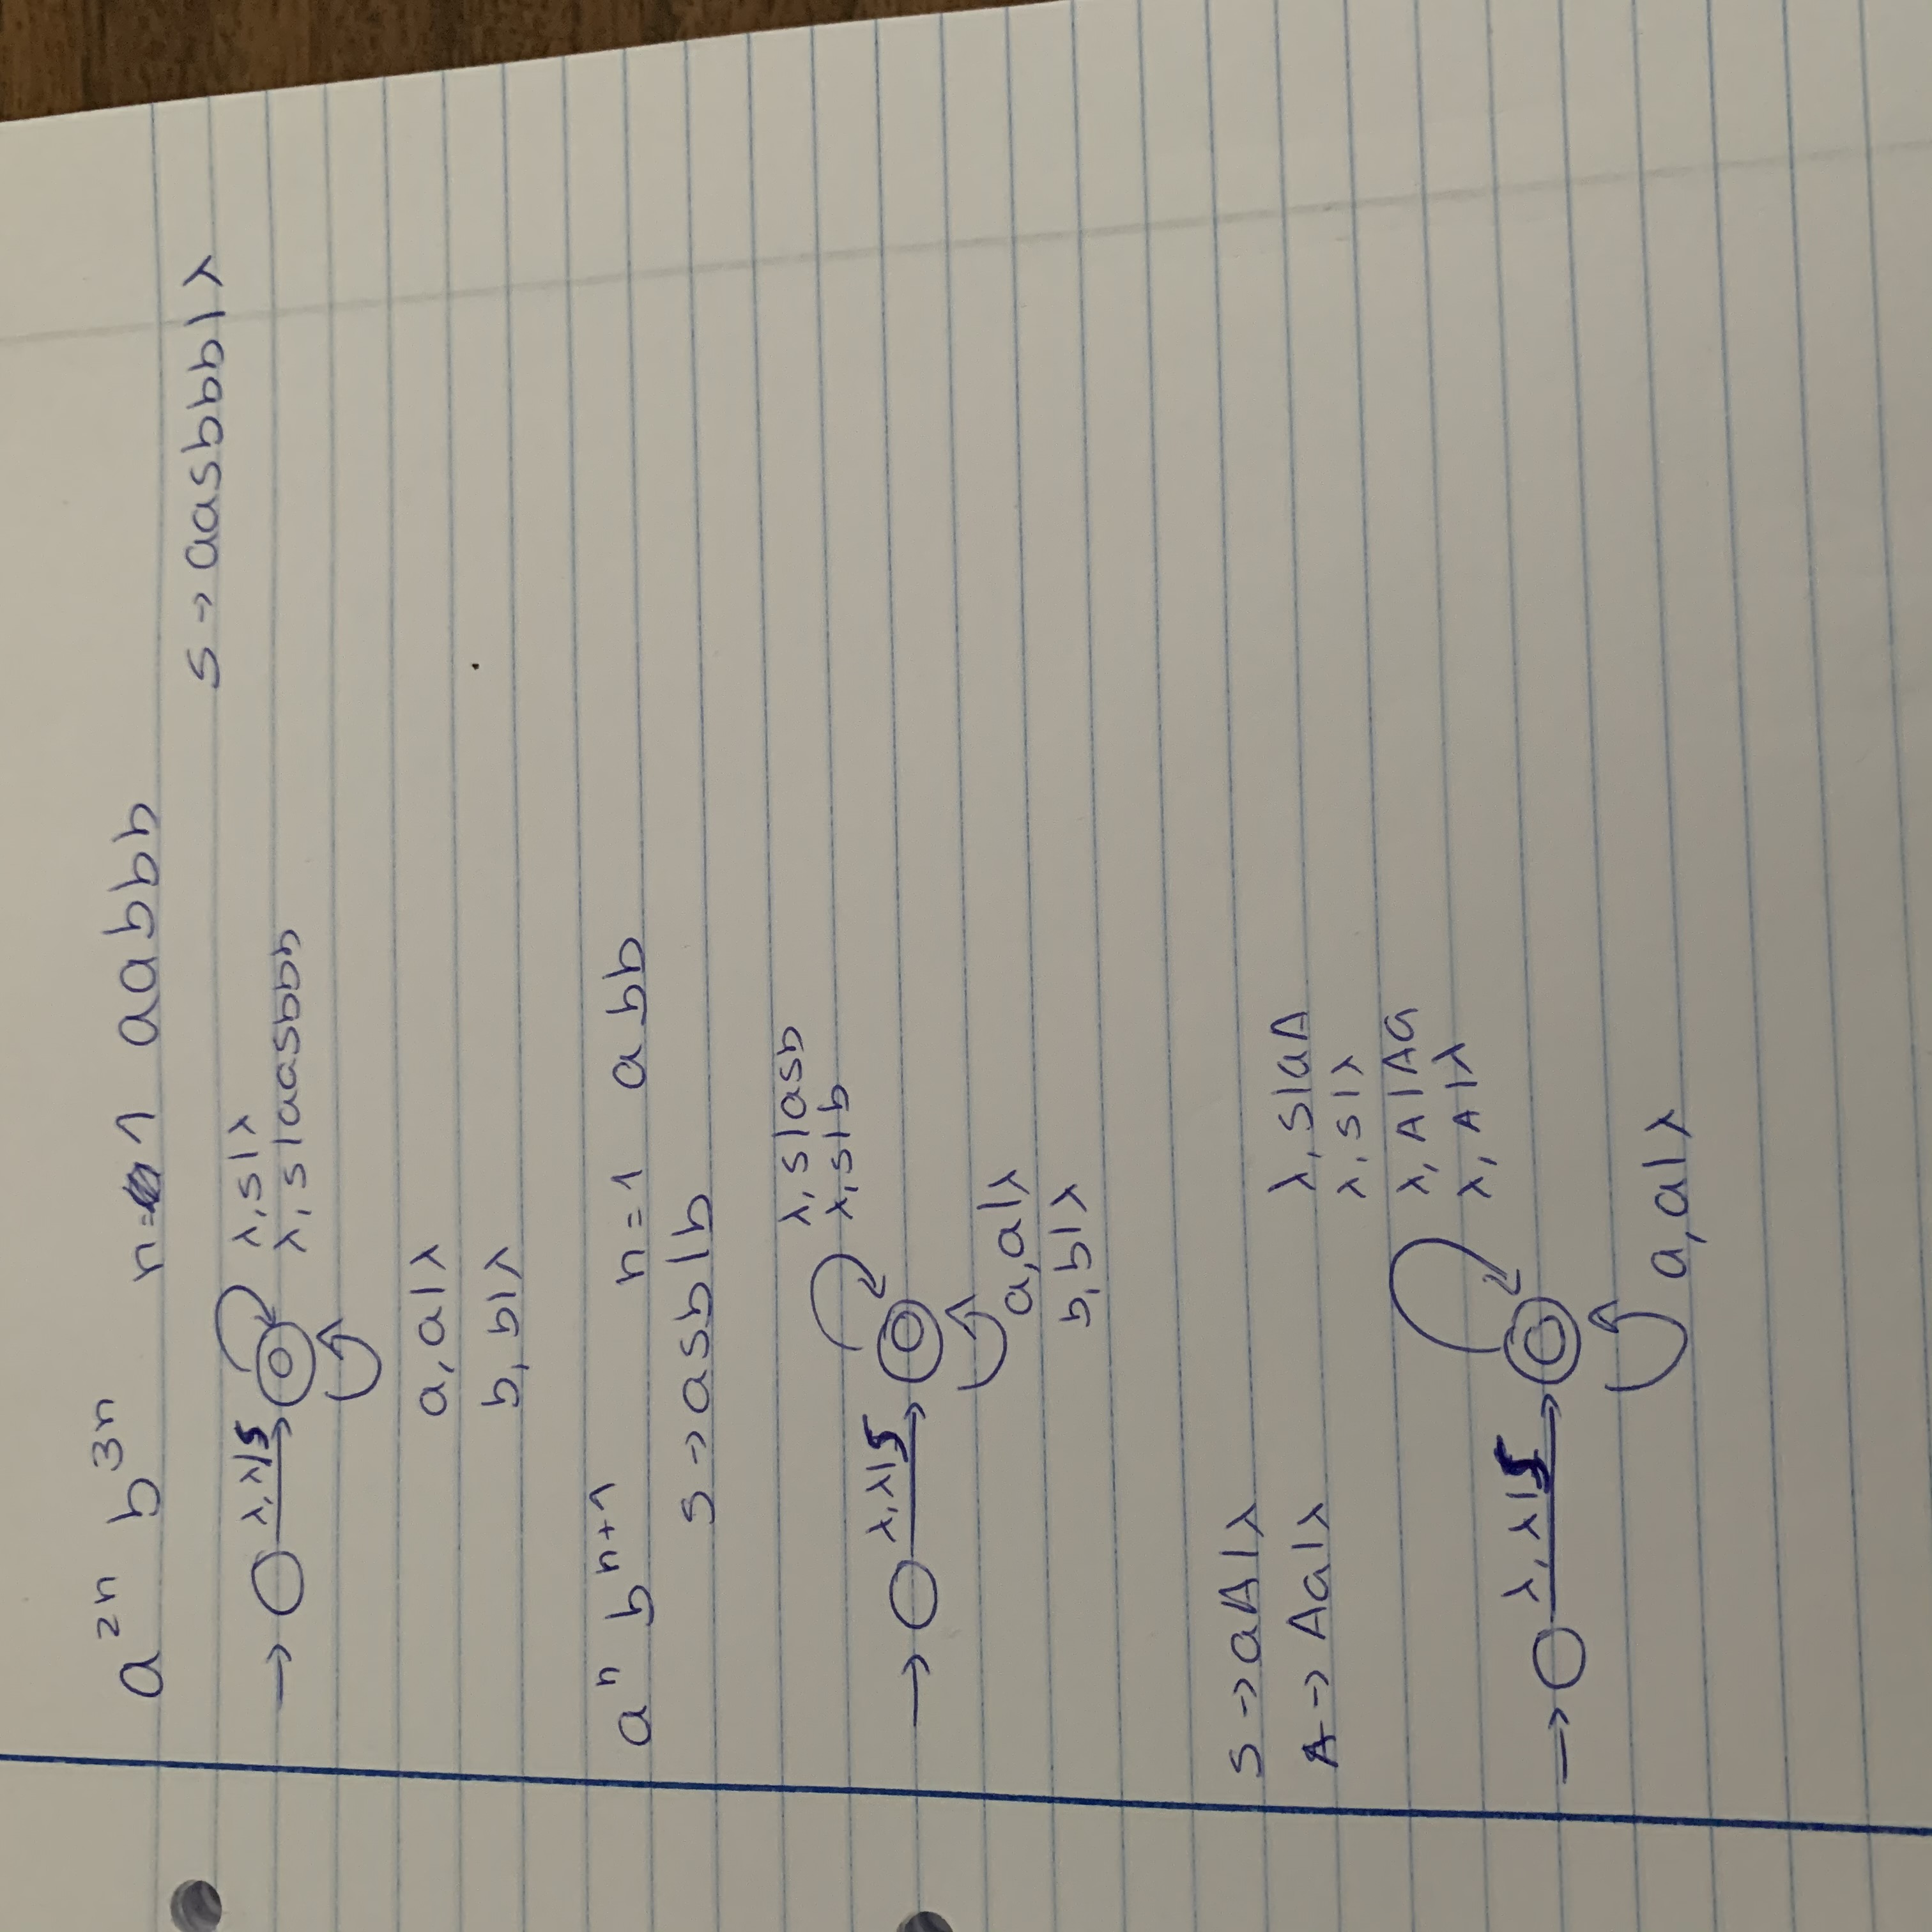 a^{2n} b^{3n} n=1 aabbb
s → aasbbb|λ
λ, λ|s
λ, s|λ
λ, s|aasbbb
a, a|λ
b, b|λ
a^n b^{n+1} n=1 abb
s → asb|b
λ, s|asb
λ, s|b
λ, λ|s
a, a|λ
b, b|λ
s → aA|λ
A → Aa|λ
λ, s|aA
λ, s|λ
λ, A|Aa
λ, A|λ
λ, λ|s
a, a|λ